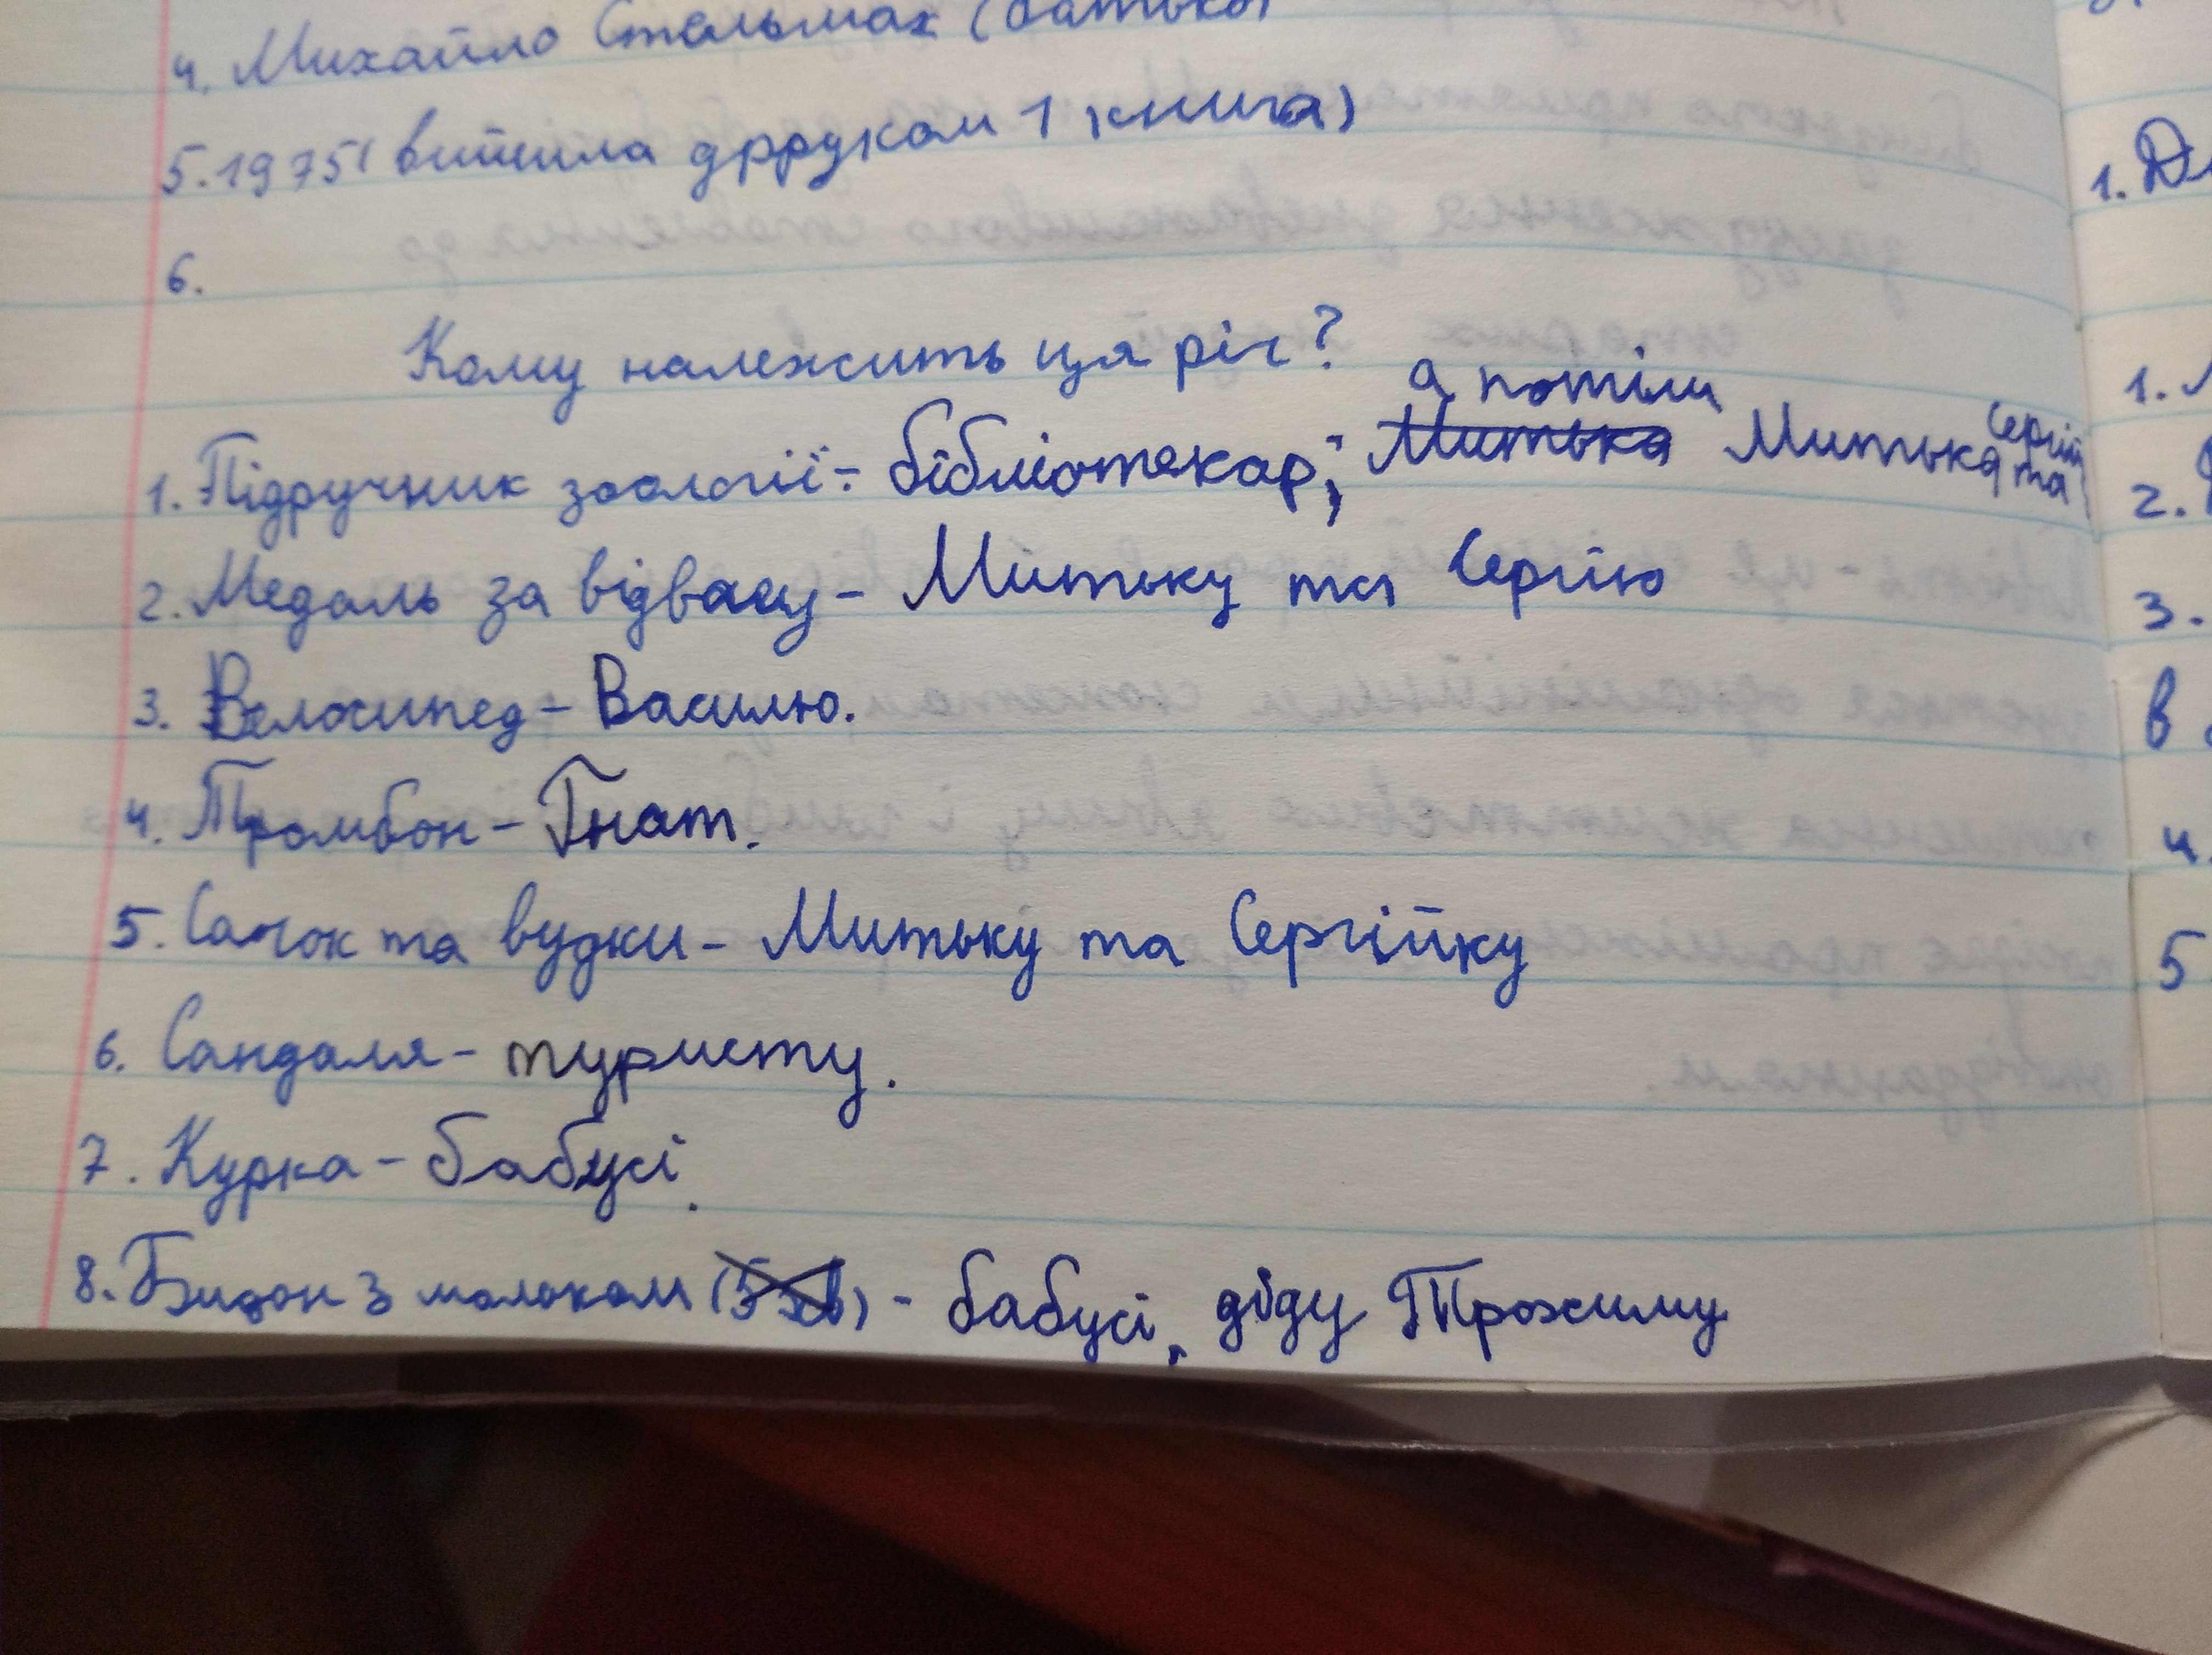 4. Михайло Стельмах (батько)
5. 1975( вийшла дрруком 1 книга)
6.
Кому належить ця річ?
а потім
1. Підручник зоології - бібліотекар; Митька Митька та Сергій
2. Медаль за відвагу - Митьку та Сергію
3. Велосипед - Василю.
4. Тромбон - Гнат.
5. Сачок та вудки - Митьку та Сергійку
6. Сандаля - туристу.
7. Курка - бабусі.
8. Бидон з молоком ( ) - бабусі, діду Трохиму
1. Д
1.
2.
3.
в
4.
5